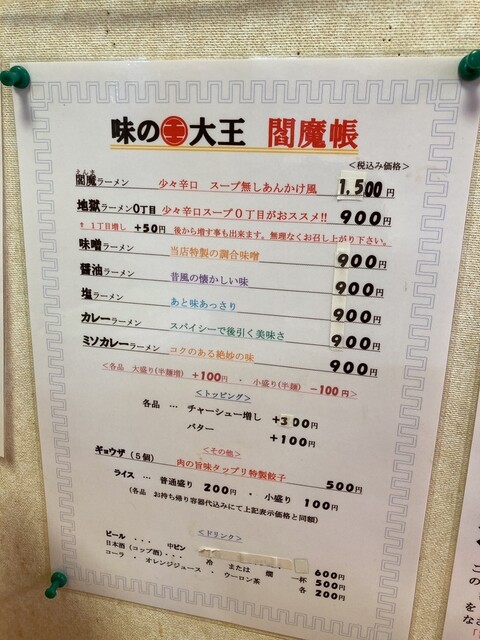 味の㊤大王 閻魔帳
<税込み価格>
えんま
閻魔ラーメン 少々辛口 スープ無しあんかけ風 1,500円
地獄ラーメン0丁目 少々辛口スープ0丁目がおススメ!! 900円
↑ 1丁目増し +50円 後から増す事も出来ます。無理なくお召し上がり下さい。
味噌ラーメン 当店特製の調合味噌 900円
醤油ラーメン 昔風の懐かしい味 900円
塩ラーメン あと味あっさり 900円
カレーラーメン スパイシーで後引く美味さ 900円
ミソカレーラーメン コクのある絶妙の味 900円
<各品 大盛り(半麺増) +100円 ・ 小盛り(半麺) -100円>
<トッピング>
各品 … チャーシュー増し +300円
バター +100円
<その他>
ギョウザ(5個) 肉の旨味タップリ特製餃子 500円
ライス … 普通盛り 200円 ・ 小盛り 100円
(各品 お持ち帰り容器代込みにて上記表示価格と同額)
<ドリンク>
ビール・・・ 中ビン 600円
日本酒(コップ酒)・・・ 冷 または 燗 一杯 500円
コーラ ・ オレンジジュース ・ ウーロン茶 各 200円